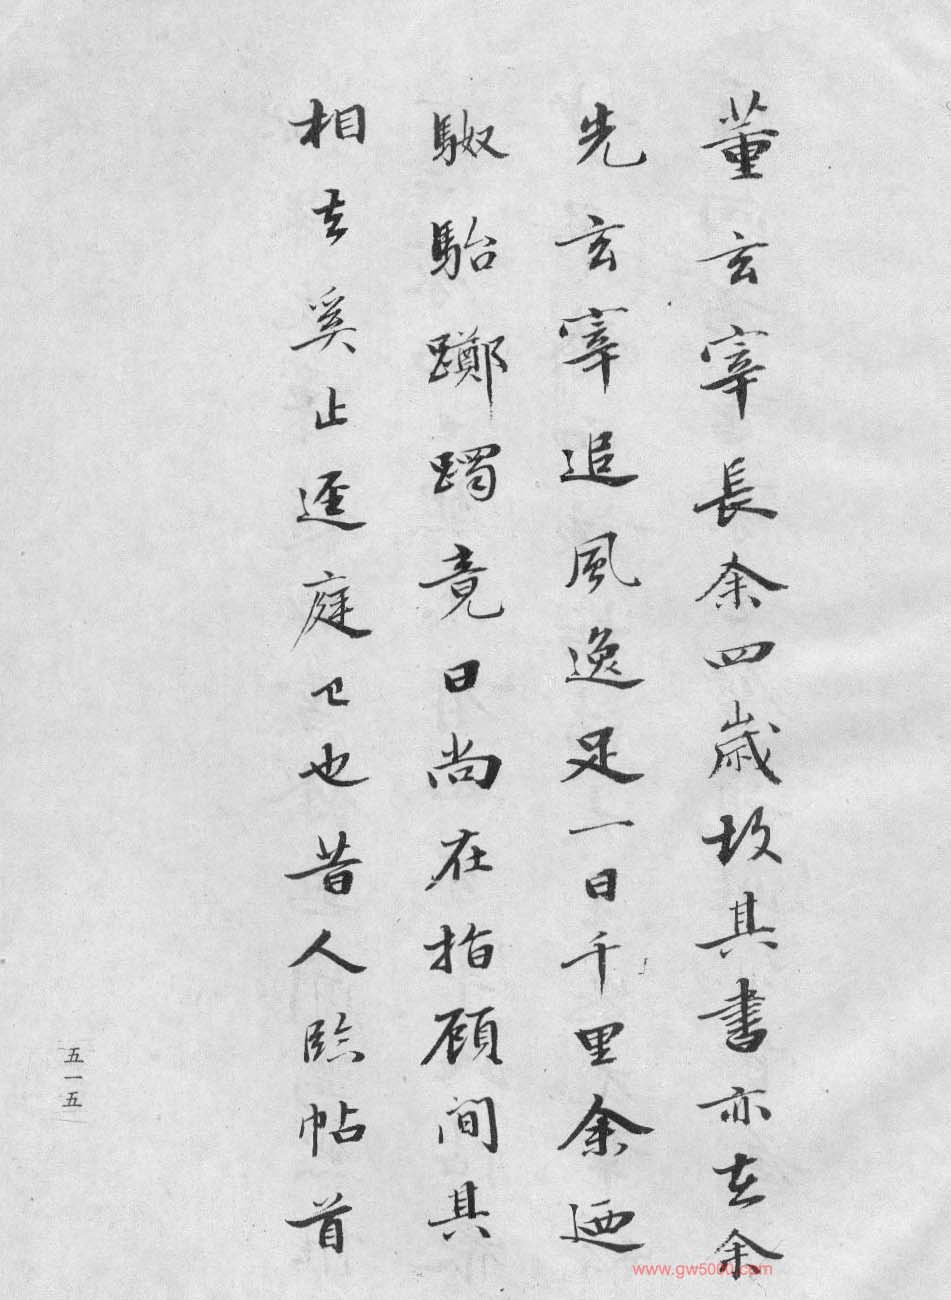 董玄宰長余四歲故其書亦在余
先玄宰追風逸足一日千里余迺
駑駘躑躅竟日尚在指顧間其
相去奚止逕庭而已也昔人臨帖首
五一五
www.gw5000.com